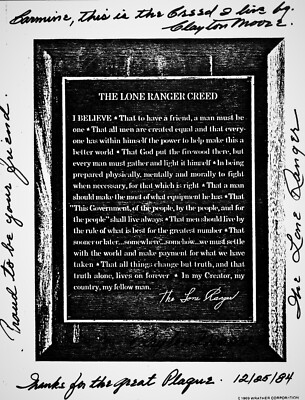 Carmine, this is the Creed I live by.
Clayton Moore.
THE LONE RANGER CREED
I BELIEVE • That to have a friend, a man must
be one • That all men are created equal and that every-
one has within himself the power to help make this a
better world • That God put the firewood there, but
every man must gather and light it himself • In being
prepared physically, mentally and morally to fight
when necessary, for that which is right • That a man
should make the most of what equipment he has • That
"This Government, of the people, by the people, and for
the people" shall live always • That men should live by
the rule of what is best for the greatest number • That
sooner or later...somewhere...somehow...we must settle
with the world and make payment for what we have
taken • That all things change but truth, and that
truth alone, lives on forever • In my Creator, my
country, my fellow man.
The Lone Ranger
Proud to be your friend.
The Lone Ranger
Thanks for the great Plaque. 12/25/84
© 1983 WRATHER CORPORATION